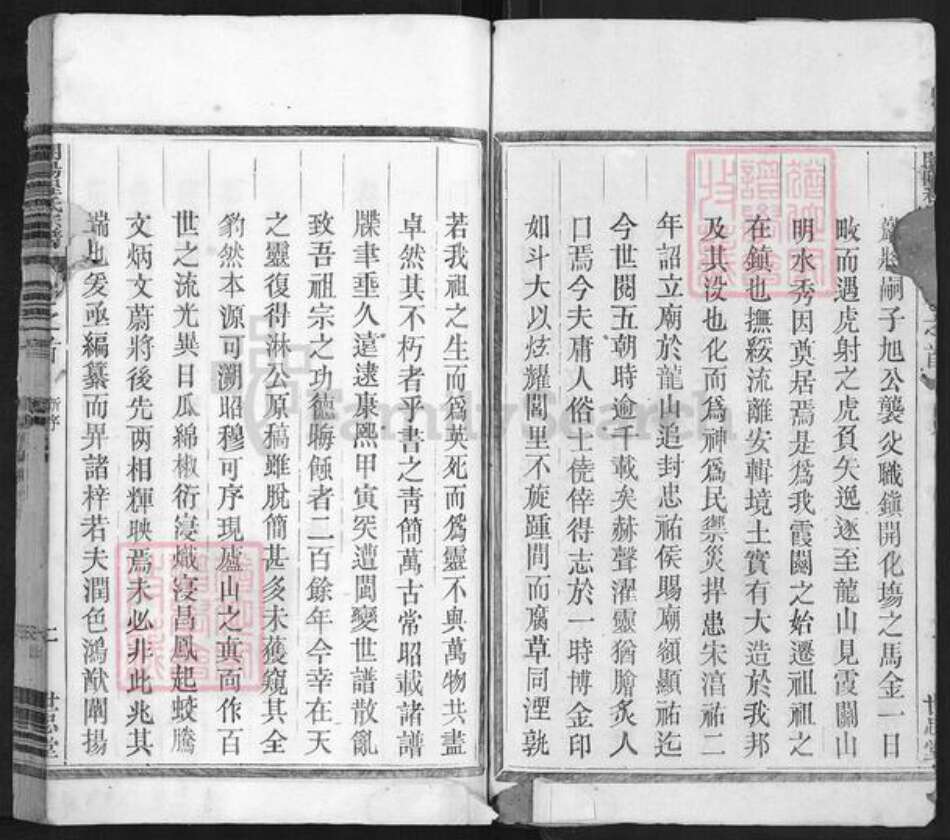 薨將嗣子旭公襲父職鎭開化塲之馬金一日
畋而遇虎射之虎負矢逸逐至龍山見霞闗山
明水秀因奠居焉是爲我霞闗之始遷祖祖之
在鎮也撫綏流離安輯境土實有大造於我邦
及其没也化而爲神爲民禦災捍患宋淳祐二
年詔立廟於龍山追封忠祐侯賜廟額顯祐迄
今世閱五朝時逾千載矣赫聲濯靈猶膾炙人
口焉今夫庸人俗士僥倖得志於一時博金印
如斗大以炫耀閭里不旋踵間而腐草同湮孰
若我祖之生而爲英死而爲靈不與萬物共盡
卓然其不朽者乎書之青簡萬古常昭載諸譜
牒聿垂久遠逮康熙甲寅突遭閩變世譜散亂
致吾祖宗之功德晦蝕者二百餘年今幸在天
之靈復得淋公原稿雖脫簡甚多未獲窺其全
豹然本源可溯昭穆可序現廬山之真面作百
世之流光異日瓜綿椒衍寖熾寖昌鳳起蛟騰
文炳文蔚將後先兩相輝映焉未必非此兆其
端也爰亟編纂而畀諸梓若夫潤色鴻猷闡揚
之首
新序
七
世忠堂
FamilySearch